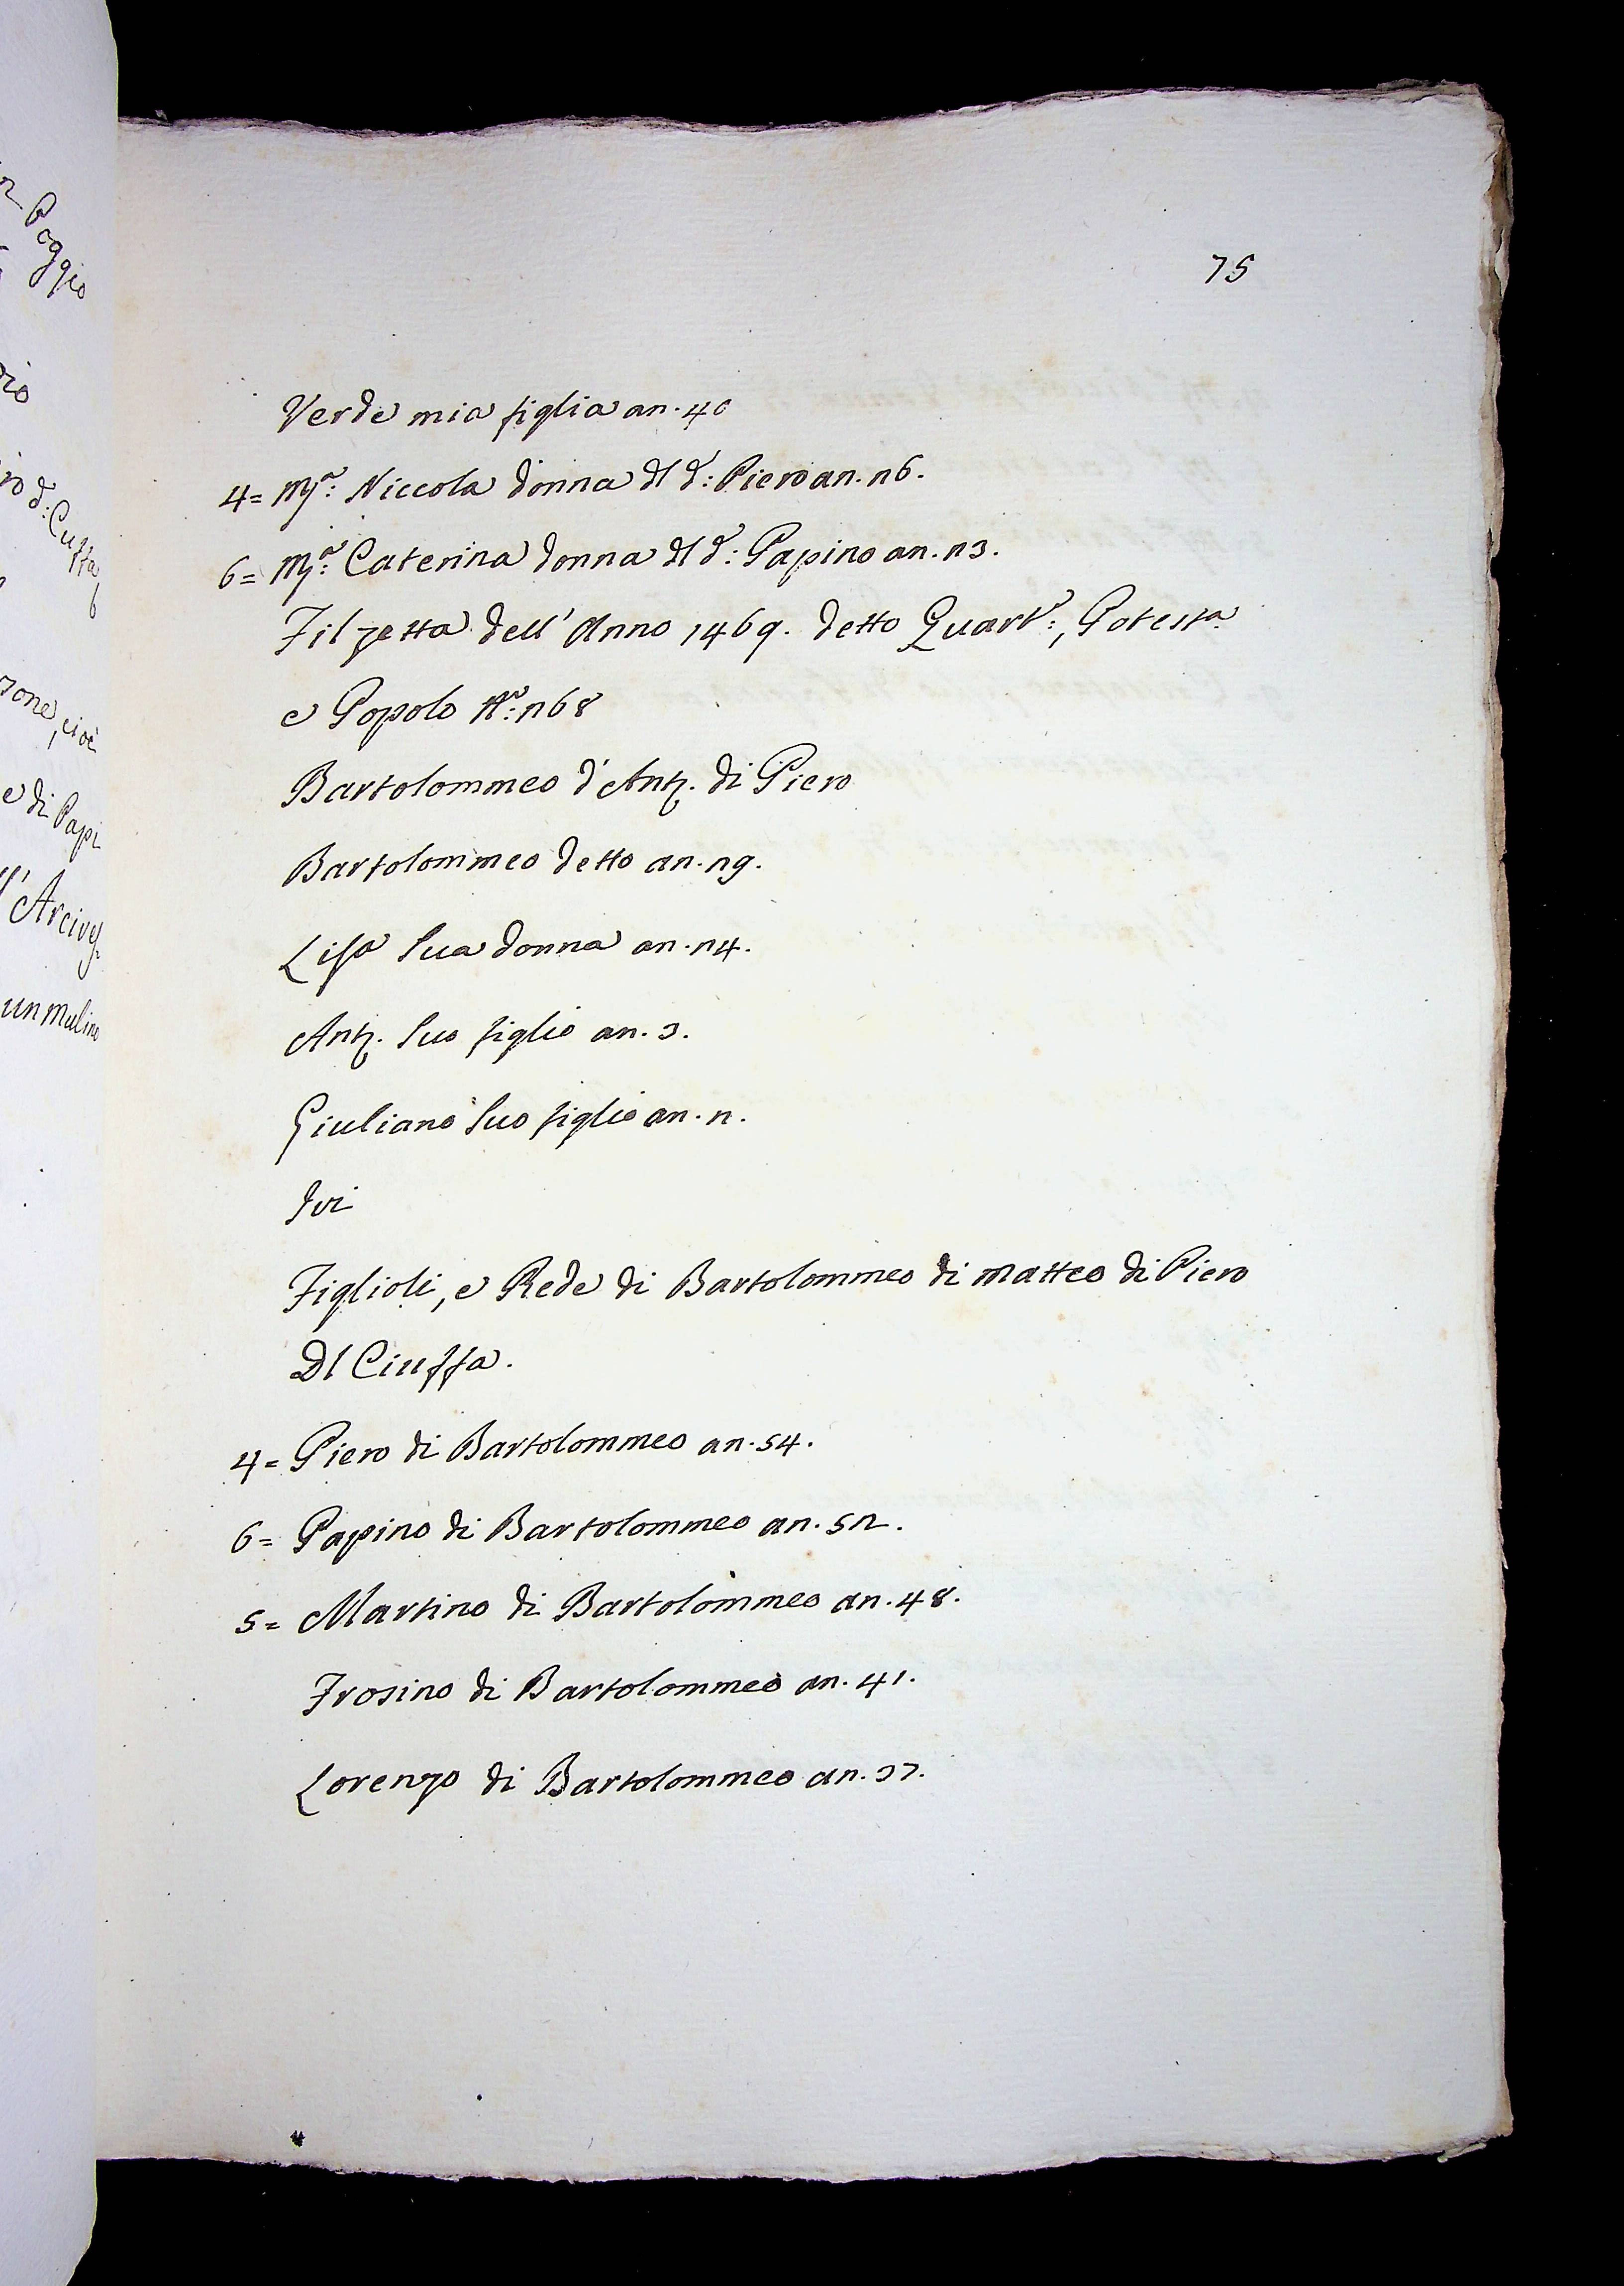 n Poggio
rio
ro d: Cuffa
zone, cioè
e di Papi
l'Arcives:
un mulino
75
Verde mia figlia an. 40
4= Mª: Niccola donna dl dº: Piero an. 26.
6= Mª: Caterina donna dl dº: Papino an. 23.
Filzetta dell' Anno 1469. detto Quartº:, Potesta
e Popolo Nº: 268
Bartolommeo d'Antº. di Piero
Bartolommeo detto an. 29.
Lisa Sua donna an. 24.
Antº. Suo figlio an. 3.
Giuliano Suo figlio an. 2.
Ivi
Figlioli, e Rede di Bartolommeo di Matteo di Piero
Dl Ciuffa.
4= Piero di Bartolommeo an. 54.
6= Papino di Bartolommeo an. 52.
5= Martino di Bartolommeo an. 48.
Frosino di Bartolommeo an. 41.
Lorenzo di Bartolommeo an. 37.